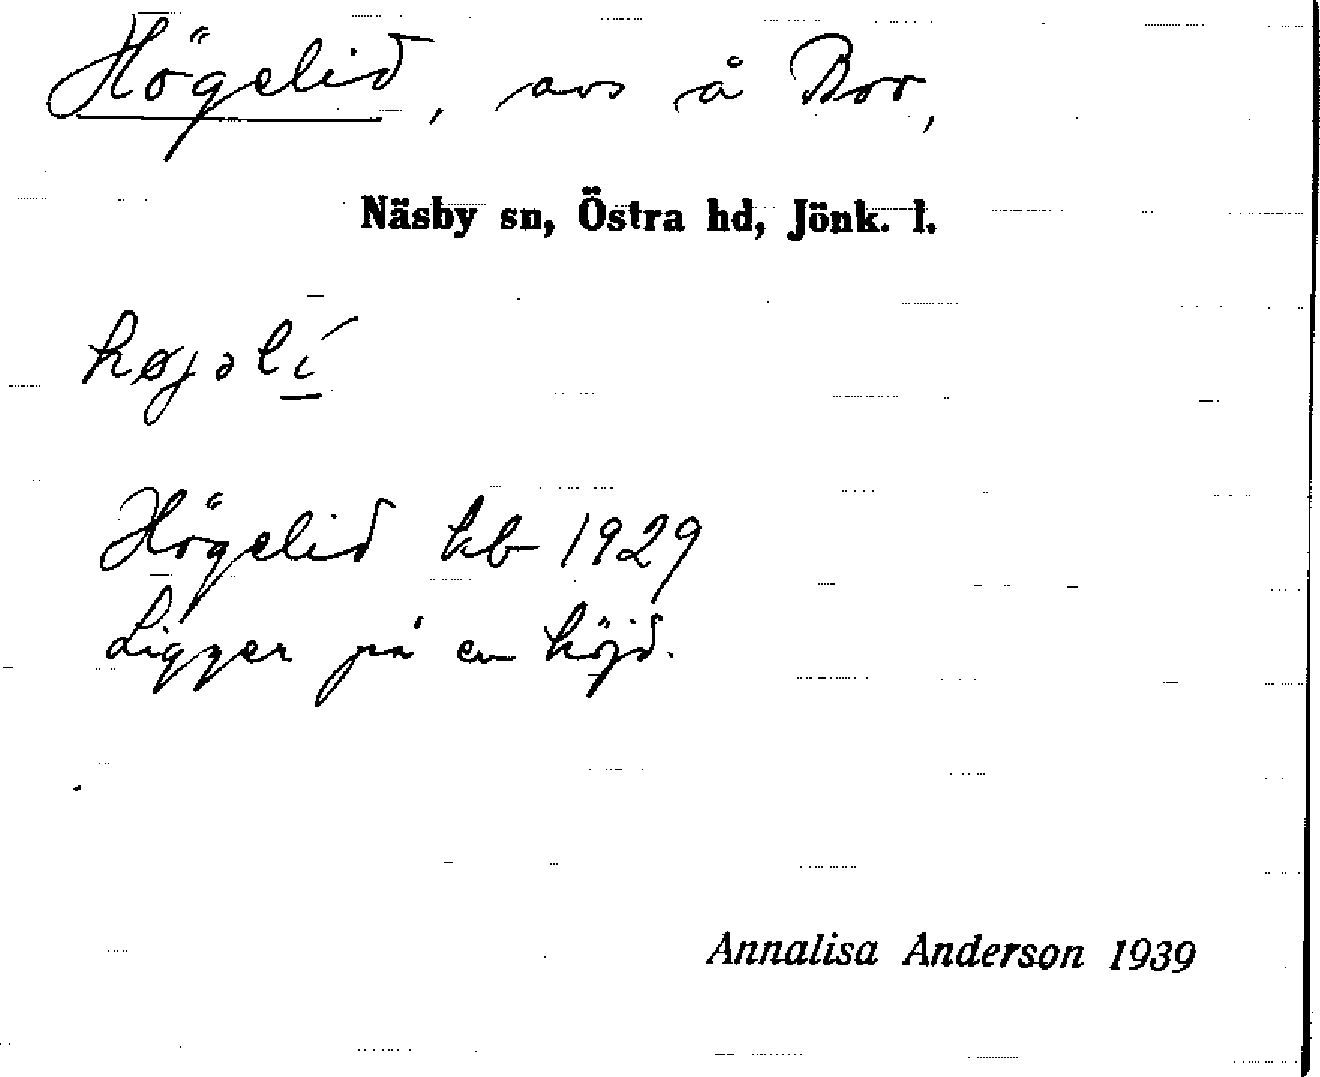 Högelid, avs å Boo,
Näsby sn, Östra hd, Jönk. l.
højəlí
Högelid kb 1929
Ligger på en höjd.
Annalisa Anderson 1939